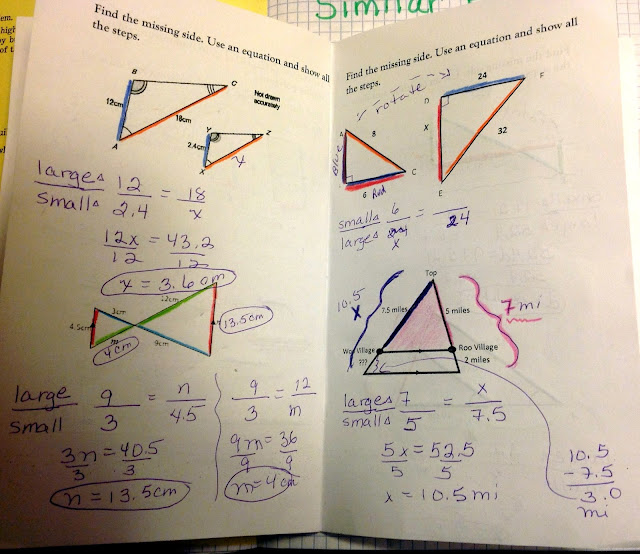 Similar
Find the missing side. Use an equation and show all
the steps.
B
C
12cm
18cm
A
Not drawn
accurately
Y
Z
2.4cm
X
x
large △ 12 = 18
small △ 2.4 x
12x = 43.2
12 12
x = 3.6 cm
3cm
12cm
4.5cm
13.5cm
m
4cm
9cm
n
large 9 = n
small 3 4.5
3n = 40.5
3 3
n = 13.5cm
9 = 12
3 m
9m = 36
9 9
m = 4cm
Find the missing side. Use an equation and show all
the steps.
rotate
24
F
D
A
8
X
32
Blue
C
6 Red
E
small △ 6 =
large △ x 24
Top
10.5
X
7.5 miles
5 miles
7 mi
Village
Roo Village
???
2 miles
large △ 7 = x
small △ 5 7.5
5x = 52.5
5 5
x = 10.5 mi
10.5
- 7.5
3.0
mi